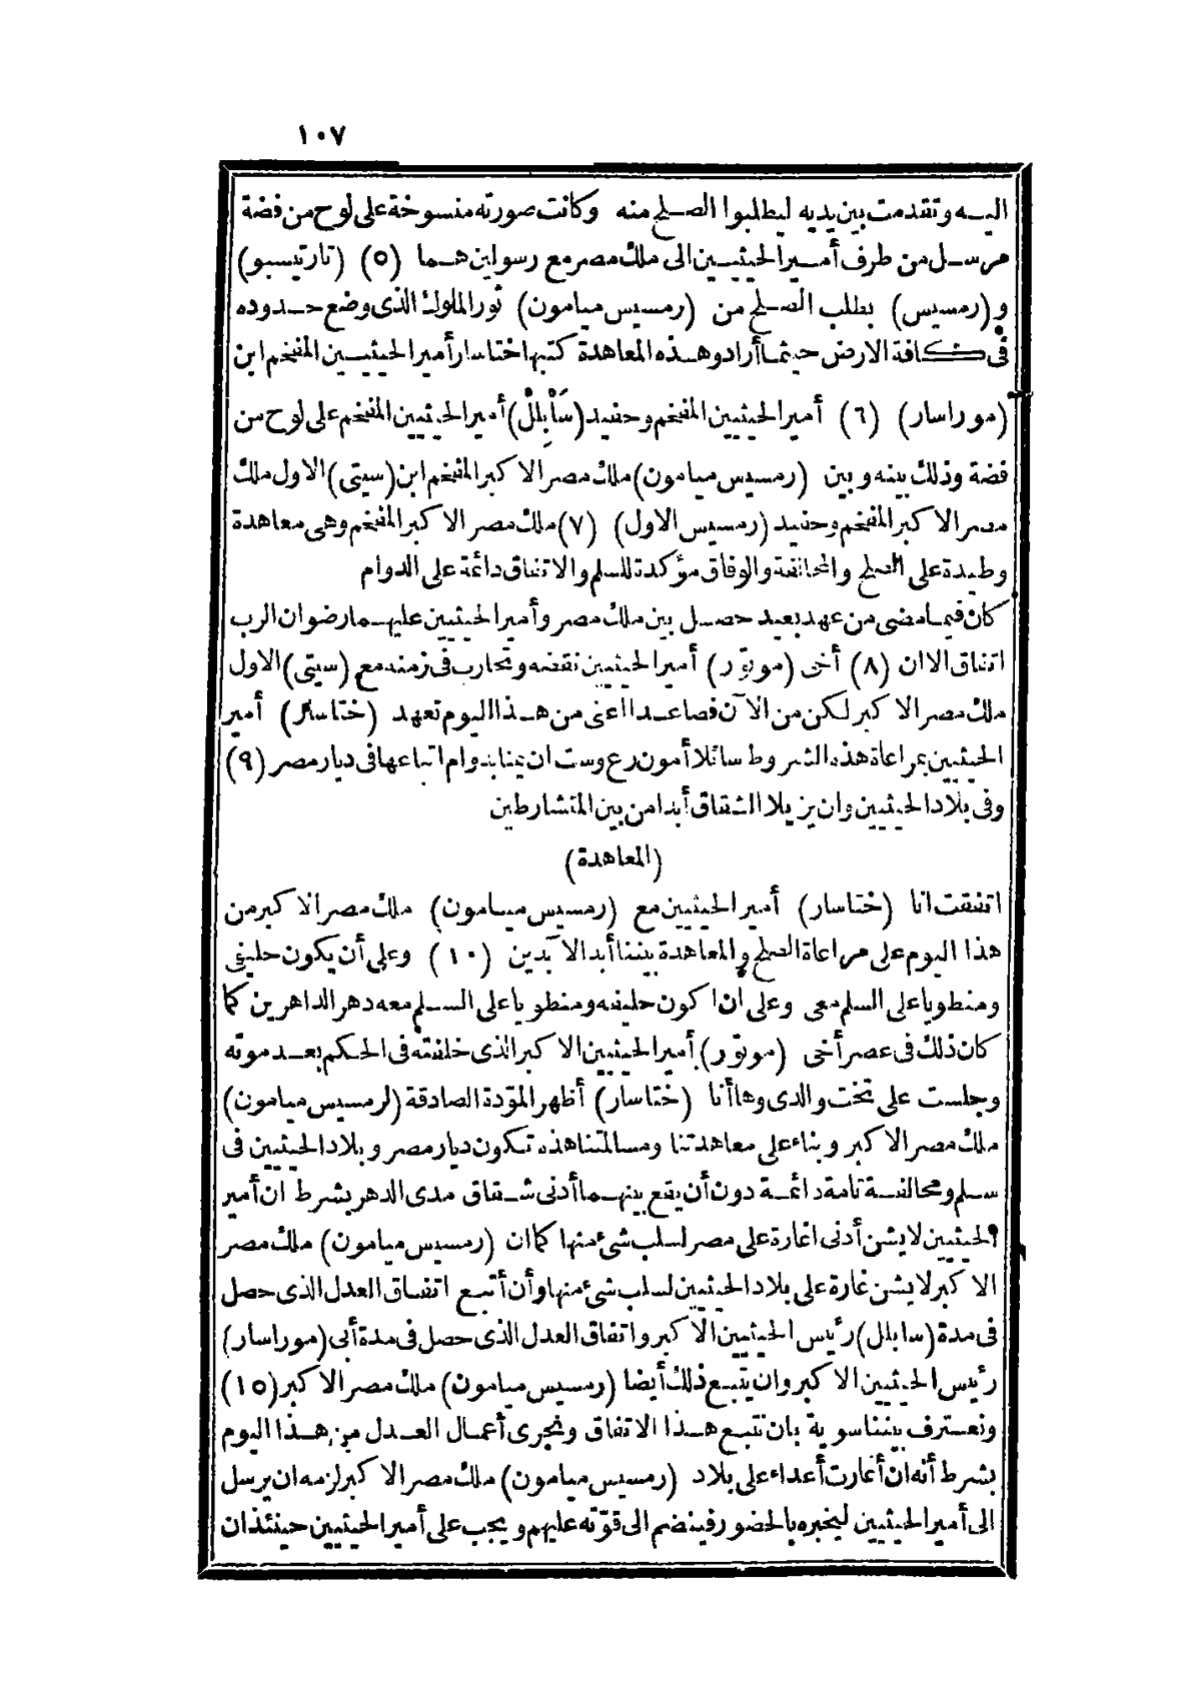 ١٠٧
اليه وتقدمت بين يديه ليطلبوا الصلح منه وكانت صورته منسوخة على لوح من فضة
مرسل من طرف أمير الحيثيين الى ملك مصر مع رسولين هما (٥) (تارتيسبو)
و(رمسيس) بطلب الصلح من (رمسيس ميامون) ثور الملوك الذى وضع حدوده
فى كافة الارض حيثما أراد وهذه المعاهدة كتبها ختاسار أمير الحيثيين المفخم ابن
(موراسار) (٦) أمير الحيثيين المفخم وحفيد (سَاْبِلَلْ) أمير الحيثيين المفخم على لوح من
فضة وذلك بينه وبين (رمسيس ميامون) ملك مصر الاكبر المفخم ابن (سيتى) الاول ملك
مصر الاكبر المفخم وحفيد (رمسيس الاول) (٧) ملك مصر الاكبر المفخم وهى معاهدة
وطيدة على الصلح والمحالفة والوفاق مؤكدة للسلم والاتفاق دائمة على الدوام
كان فيما مضى من عهد بعيد حصل بين ملك مصر وأمير الحيثيين عليهما رضوان الرب
اتفاق الا ان (٨) أخى (موتور) أمير الحيثيين نقضه وتحارب فى زمنه مع (سيتى) الاول
ملك مصر الاكبر لكن من الآن فصاعدا اعنى من هذا اليوم تعهد (ختاسار) أمير
الحيثيين بمراعاة هذه الشروط سائلا أمون رع وست ان يمنا بدوام اتباعها فى ديار مصر (٩)
وفى بلاد الحيثيين وان يزيلا الشقاق أبدا من بين المتشارطين
(المعاهدة)
اتفقت انا (ختاسار) أمير الحيثيين مع (رمسيس ميامون) ملك مصر الاكبر من
هذا اليوم على مراعاة الصلح والمعاهدة بيننا أبد الآبدين (١٠) وعلى أن يكون حليفى
ومنطويا على السلم معى وعلى ان اكون حليفه ومنطويا على السلم معه دهر الداهرين كما
كان ذلك فى عصر أخى (موتور) أمير الحيثيين الاكبر الذى خلفته فى الحكم بعد موته
وجلست على تخت والدى وها أنا (ختاسار) أظهر المودّة الصادقة (لرمسيس ميامون)
ملك مصر الاكبر وبناء على معاهدتنا ومسالمتنا هذه تكون ديار مصر وبلاد الحيثيين فى
سلم ومحالفة تامة دائمة دون أن يقع بينهما أدنى شقاق مدى الدهر بشرط ان أمير
الحيثيين لا يشن أدنى اغارة على مصر لسلب شئ منها كما ان (رمسيس ميامون) ملك مصر
الاكبر لا يشن غارة على بلاد الحيثيين لسلب شئ منها وأن أتبع اتفاق العدل الذى حصل
فى مدة (سابلل) رئيس الحيثيين الاكبر واتفاق العدل الذى حصل فى مدة أبى (موراسار)
رئيس الحيثيين الاكبر وان يتبع ذلك أيضا (رمسيس ميامون) ملك مصر الاكبر (١٥)
ونعترف بيننا سوية بان نتبع هذا الاتفاق ونجرى أعمال العدل من هذا اليوم
بشرط أنه ان أغارت أعداء على بلاد (رمسيس ميامون) ملك مصر الاكبر لزمه ان يرسل
الى أمير الحيثيين ليخبره بالحضور فينضم الى قوّته عليهم ويجب على أمير الحيثيين حينئذ ان